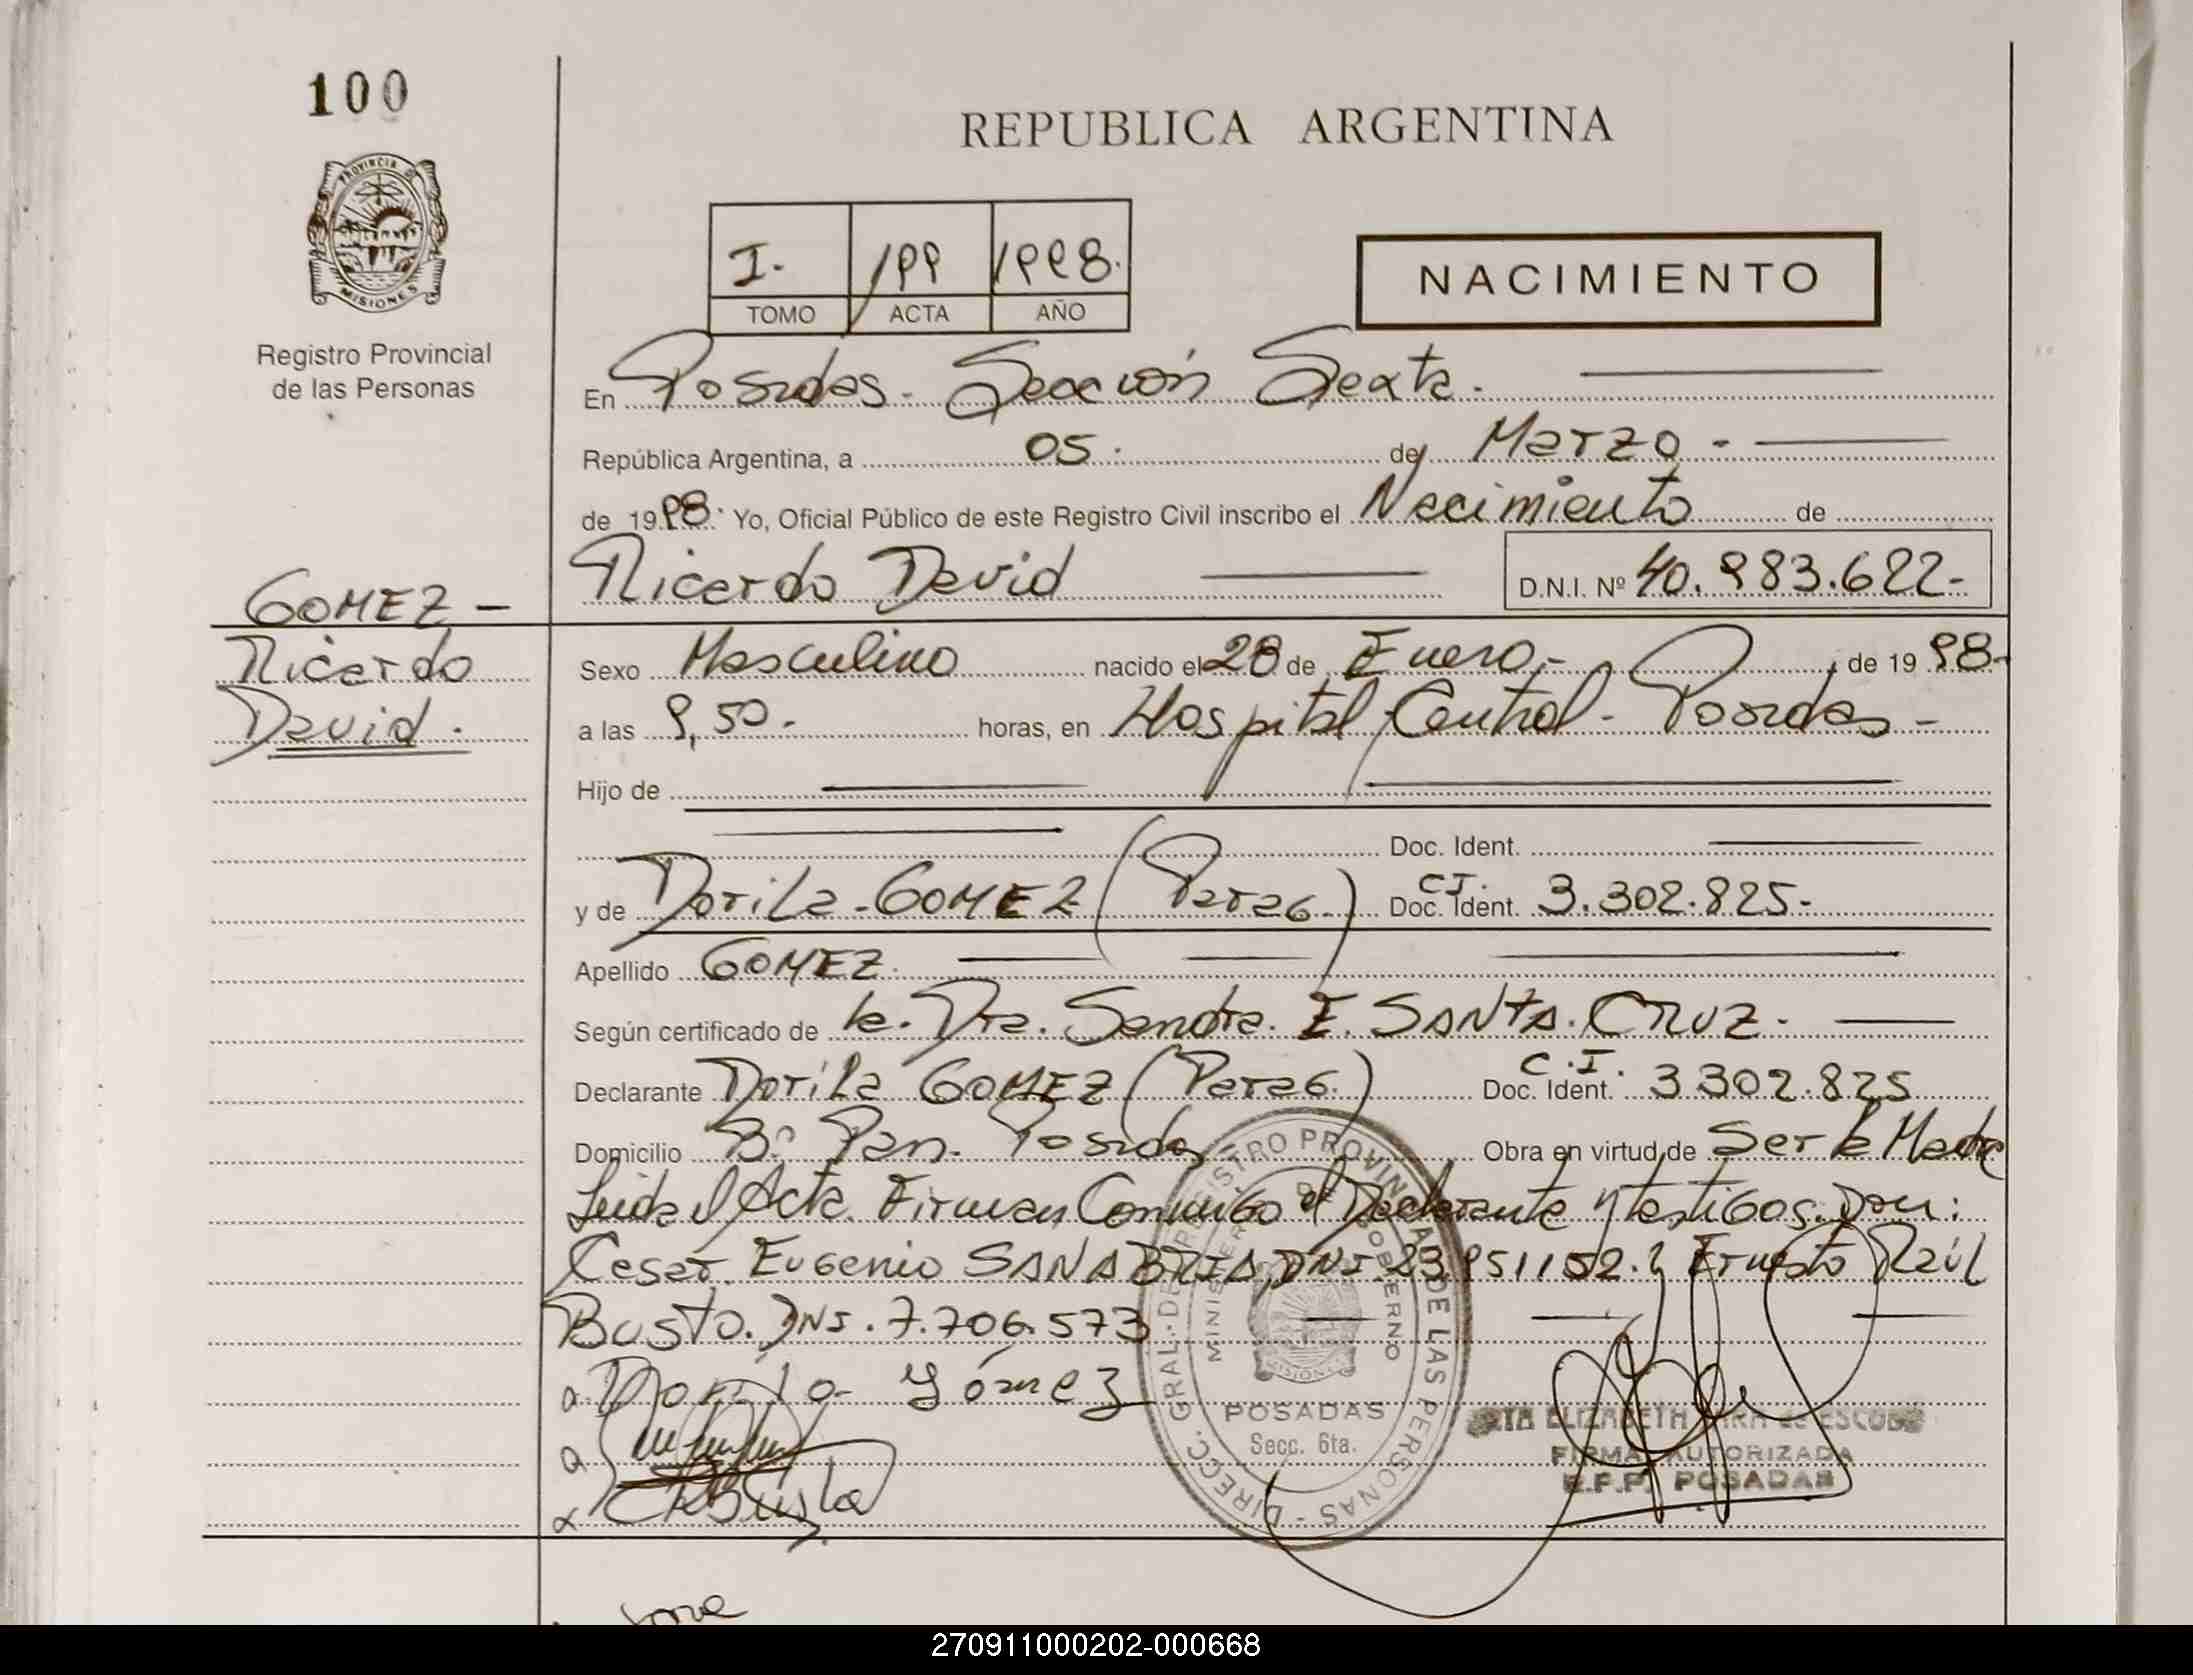 100
REPUBLICA ARGENTINA
PROVINCIA DE
MISIONES
Registro Provincial
de las Personas
I. 199 1998.
TOMO ACTA AÑO
NACIMIENTO
En Posadas. Sección Sexta.
República Argentina, a 05. de Marzo -
de 1998. Yo, Oficial Público de este Registro Civil inscribo el Nacimiento de
Ricardo David D.N.I. Nº 40.983.622-
GOMEZ -
Ricardo
David.
Sexo Masculino nacido el 28 de Enero,- de 19 98-
a las 9,50.- horas, en Hospital Central - Posadas -
Hijo de
Doc. Ident.
y de Dorila GOMEZ (Parag.) C.I. Doc. Ident. 3.302.825-
Apellido GOMEZ.
Según certificado de la. Dra. Sandra. E. SANTA. CRUZ.
Declarante Dorila GOMEZ (Parag.) C.I. Doc. Ident. 3302.825
Domicilio Bº. Posadas Obra en virtud de Ser la Madre
Leida el Acta. Firman Conmigo el Declarante y testigos. Don:
Cesar. Eugenio SANABRIA, DNI. 23.951152. y Ernesto Raúl
Busto. DNI. 7.706.573
a. Dorila Gómez
a
a
DIRECC. GRAL. DE REGISTRO PROVINCIAL DE LAS PERSONAS
MINISTERIO DE GOBIERNO
MISIONES
POSADAS
Secc. 6ta.
ELIZABETH de ESCOBAR
FIRMA AUTORIZADA
POSADAS
270911000202-000668